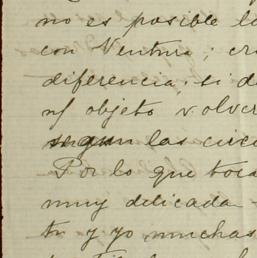 no es posible l
con Ventura; cr
diferencia, si d
objeto volver
segun las circ
Por lo que toca
muy delicada
tu y yo muchas